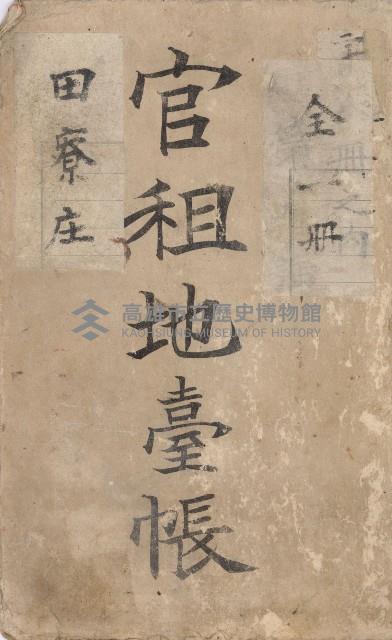 全一冊
官租地臺帳
田寮庄
高雄市立歷史博物館
KAOHSIUNG MUSEUM OF HISTORY